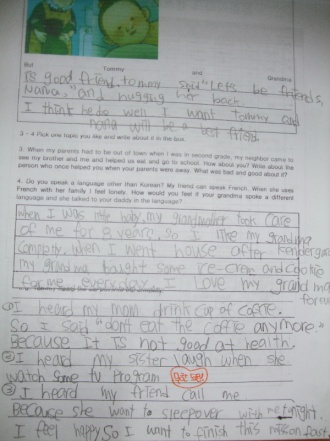 But Tommy and Grandma
is good friend. tommy said "Lets be friends,
Nana," and hugging her back.
I think he do well I want tommy and
nana will be a best friend
3 - 4 Pick one topic you like and write about it in the box.
3. When my parents had to be out of town when I was in second grade, my neighbor came to
see my brother and me and helped us eat and go to school. How about you? Write about the
person who once helped you when your parents were away. What was bad and good about it?
4. Do you speak a language other than Korean? My friend can speak French. When she uses
French with her family I feel lonely. How would you feel if your grandma spoke a different
language and she talked to your daddy in the language?
when I was little baby, my grandmother took care
of me for 8 years. so I like my grandma
when I went house after
my grandma baught some ice-crem and cookie
for me everyday. I love my grandma
① I heard my mom drink cup of coffie.
So I said "don't eat the coffie anymore"
Because It is not good at health.
② I heard my sister laugh when she
watch some tv program
③ I heard my friend call me
Because she want to sleepover with me tonight.
I feel happy So I want to finish this fast